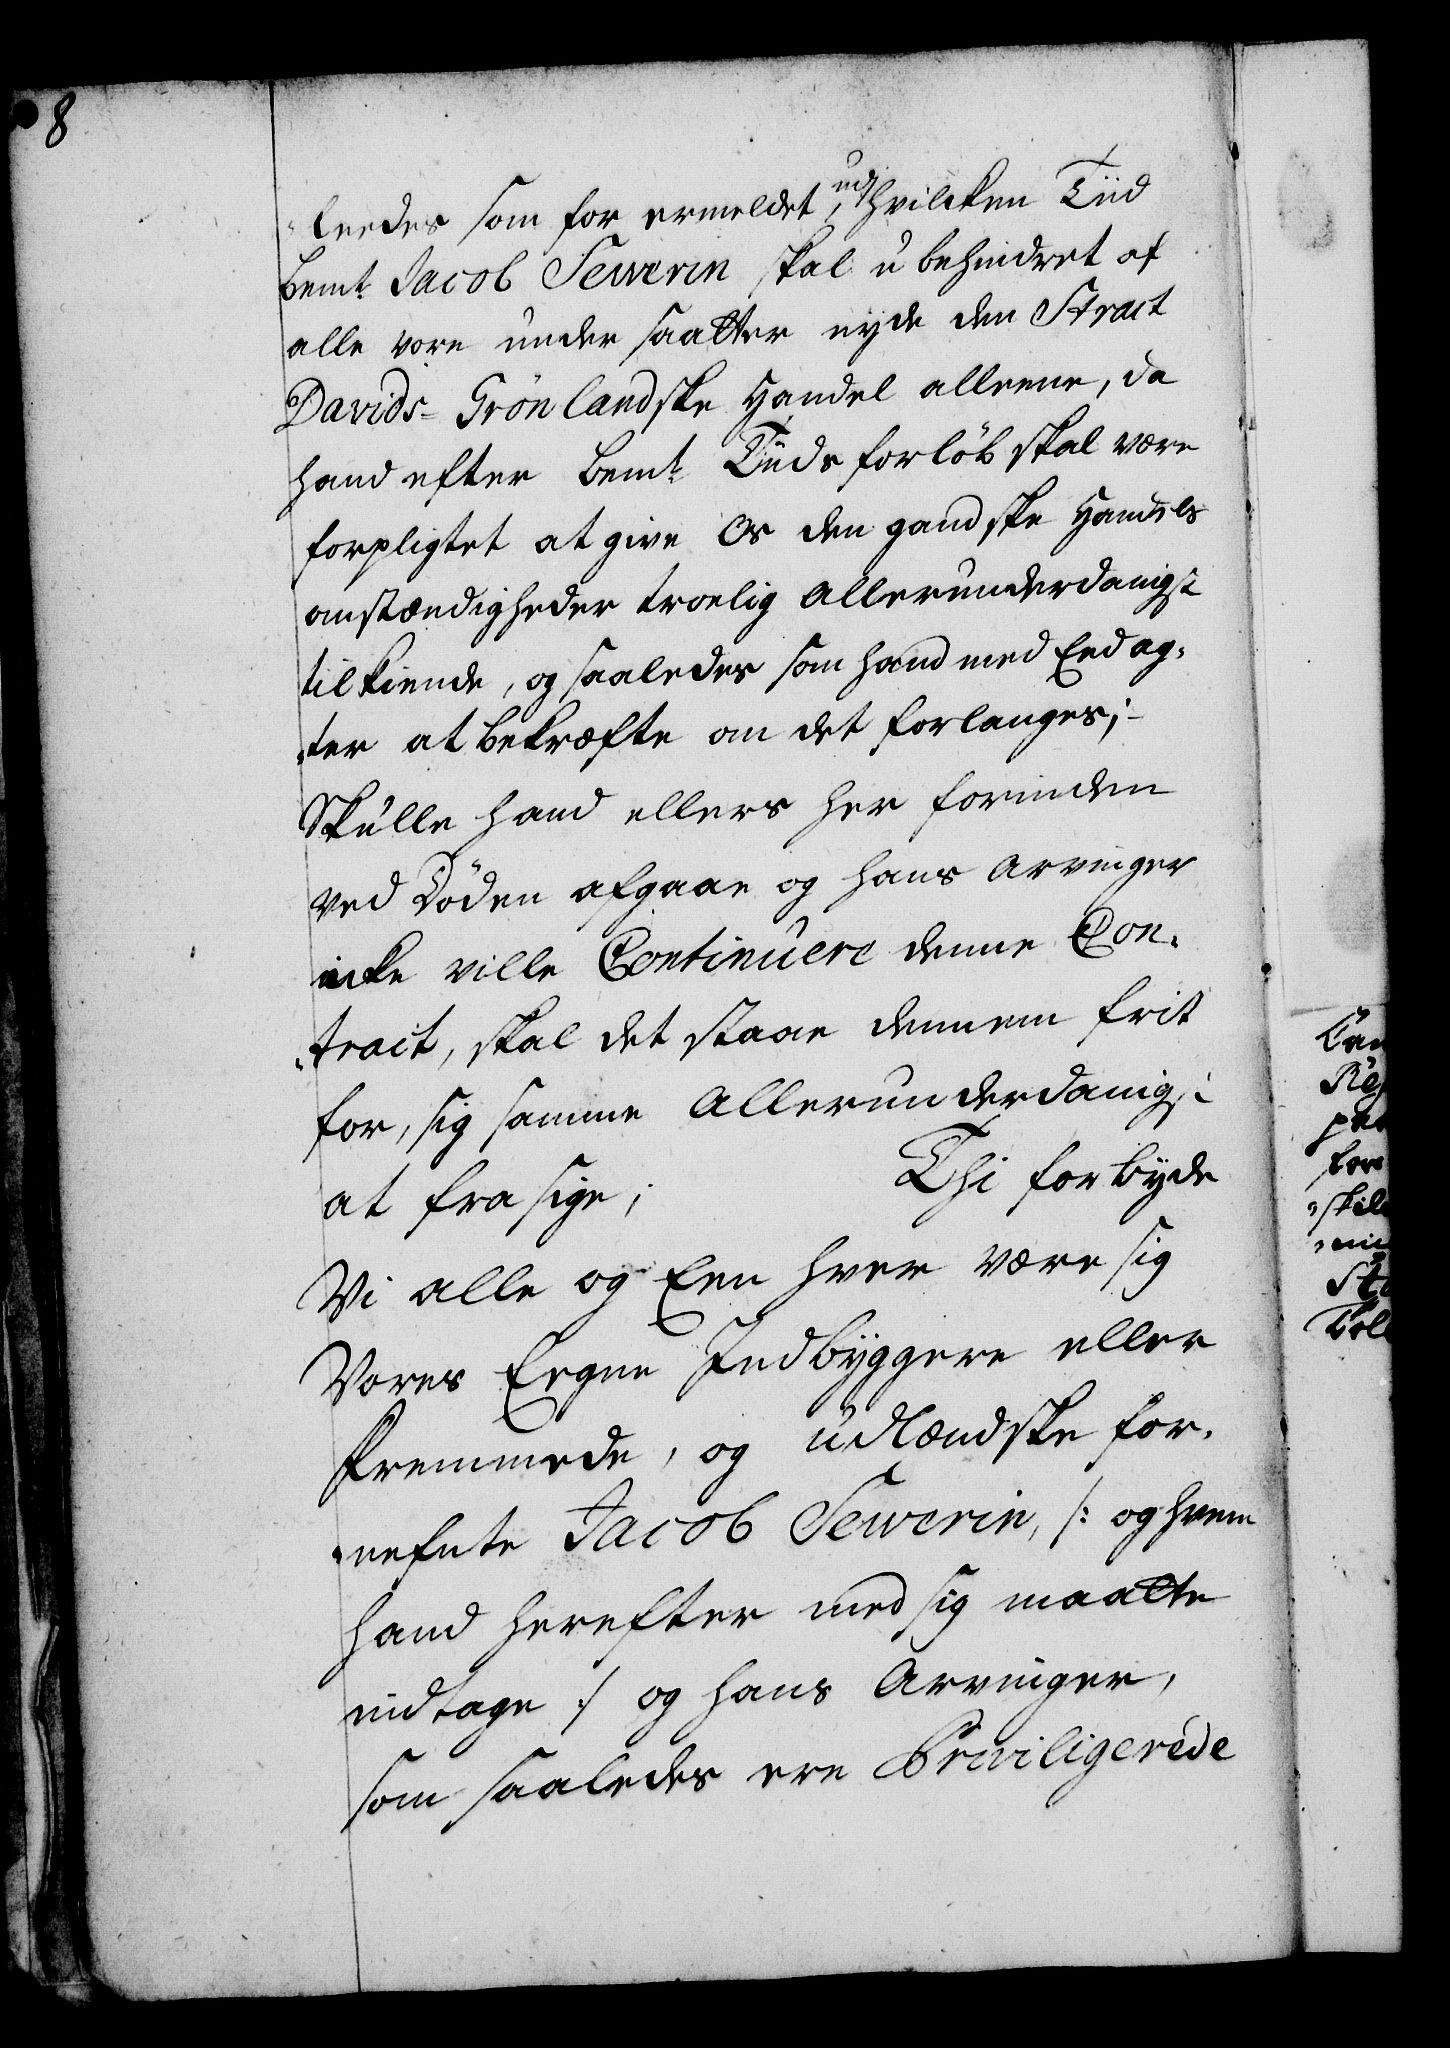 8
leedes som for ermeldet, ud hvilcken Tiid
bemt: Jacob Sewerin skal u behindret af
alle vore under saatter nyde den Stract
Davids- Grönlandske Handel alleene, da
hand efter bemt: Tiids forlöb skal være
forpligtet at give Os den gandske Handels
omstændigheder troelig Allerunderdanigst
tilkiende, og saaledes som hand med Eed ag-
ter at bekræfte om det forlanges;
Skulle hand ellers her forinden
ved Döden afgaae og hans Arvinger
icke ville Continuere denne Con-
tract, skal det staae dennem frit
for, sig samme Allerunderdanigst
at fra sige; Thi forbyde
Vi alle og Een hver være sig
Vores Eegne Indbyggere eller
fremmede, og udlændske for-
nefnte Jacob Sewerin, /: og hvem
hand herefter med sig maatte
indtage :/ og hans Arvinger,
som saaledes ere Priviligerede